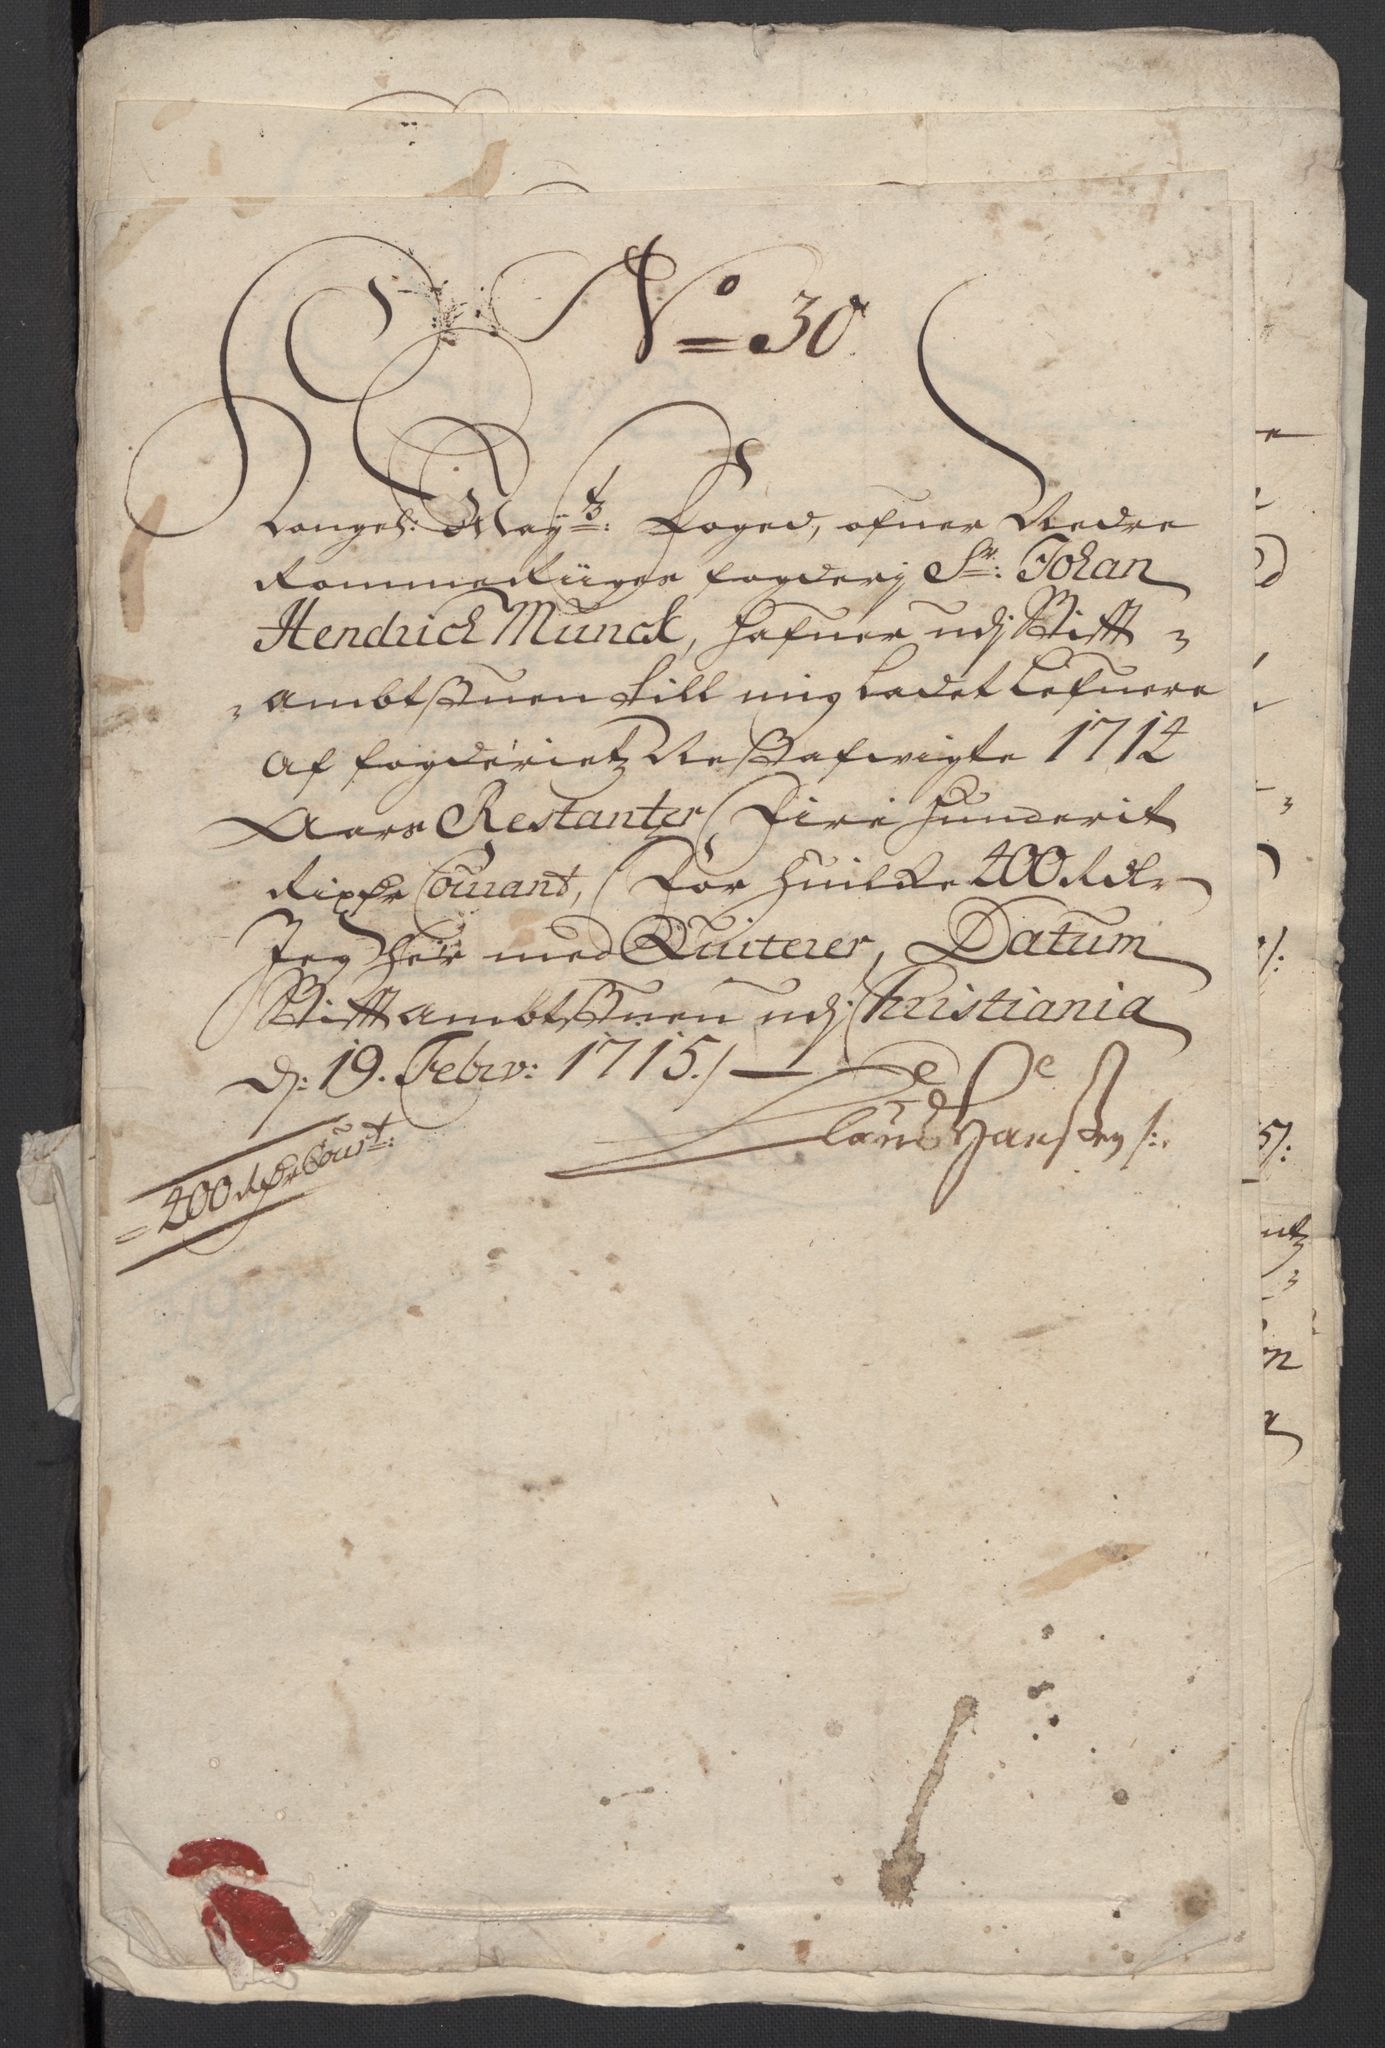 No = 30
Kongel: May.tz: Foged, ofuer Nedre
Rommeriigес fogderj Sr: Johan
Hendrich Munck, hafuer udj Stifft
ambtstuen till mig ladet lefuere
Af fogderietz Resterafvigte 1714
Aars Restantzer, Fire hunderit
Rixdr Courant, For huilcke 400 Rdlr
Jeg her med Quiterer, Datum
Stifftambtstuen udj Christiania
d: 19. Febrv: 1715 /
Claus Hanssen /:
= 400 Rdr Court: